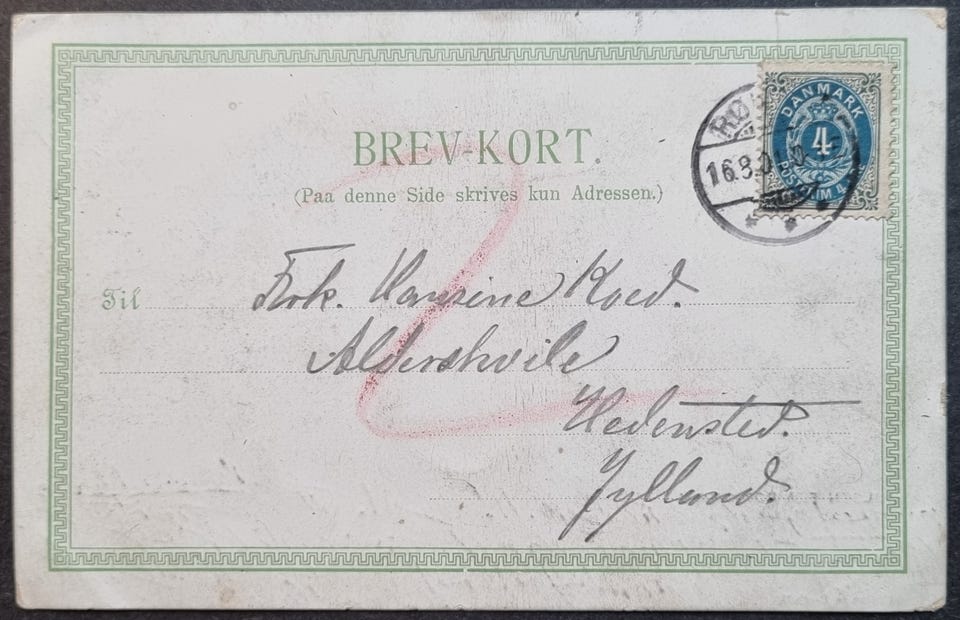 BREV-KORT.
(Paa denne Side skrives kun Adressen.)
DANMARK
4
16.8.0
Til Frk. Hansine Koed.
Aldershvile
Hedensted.
Jylland.